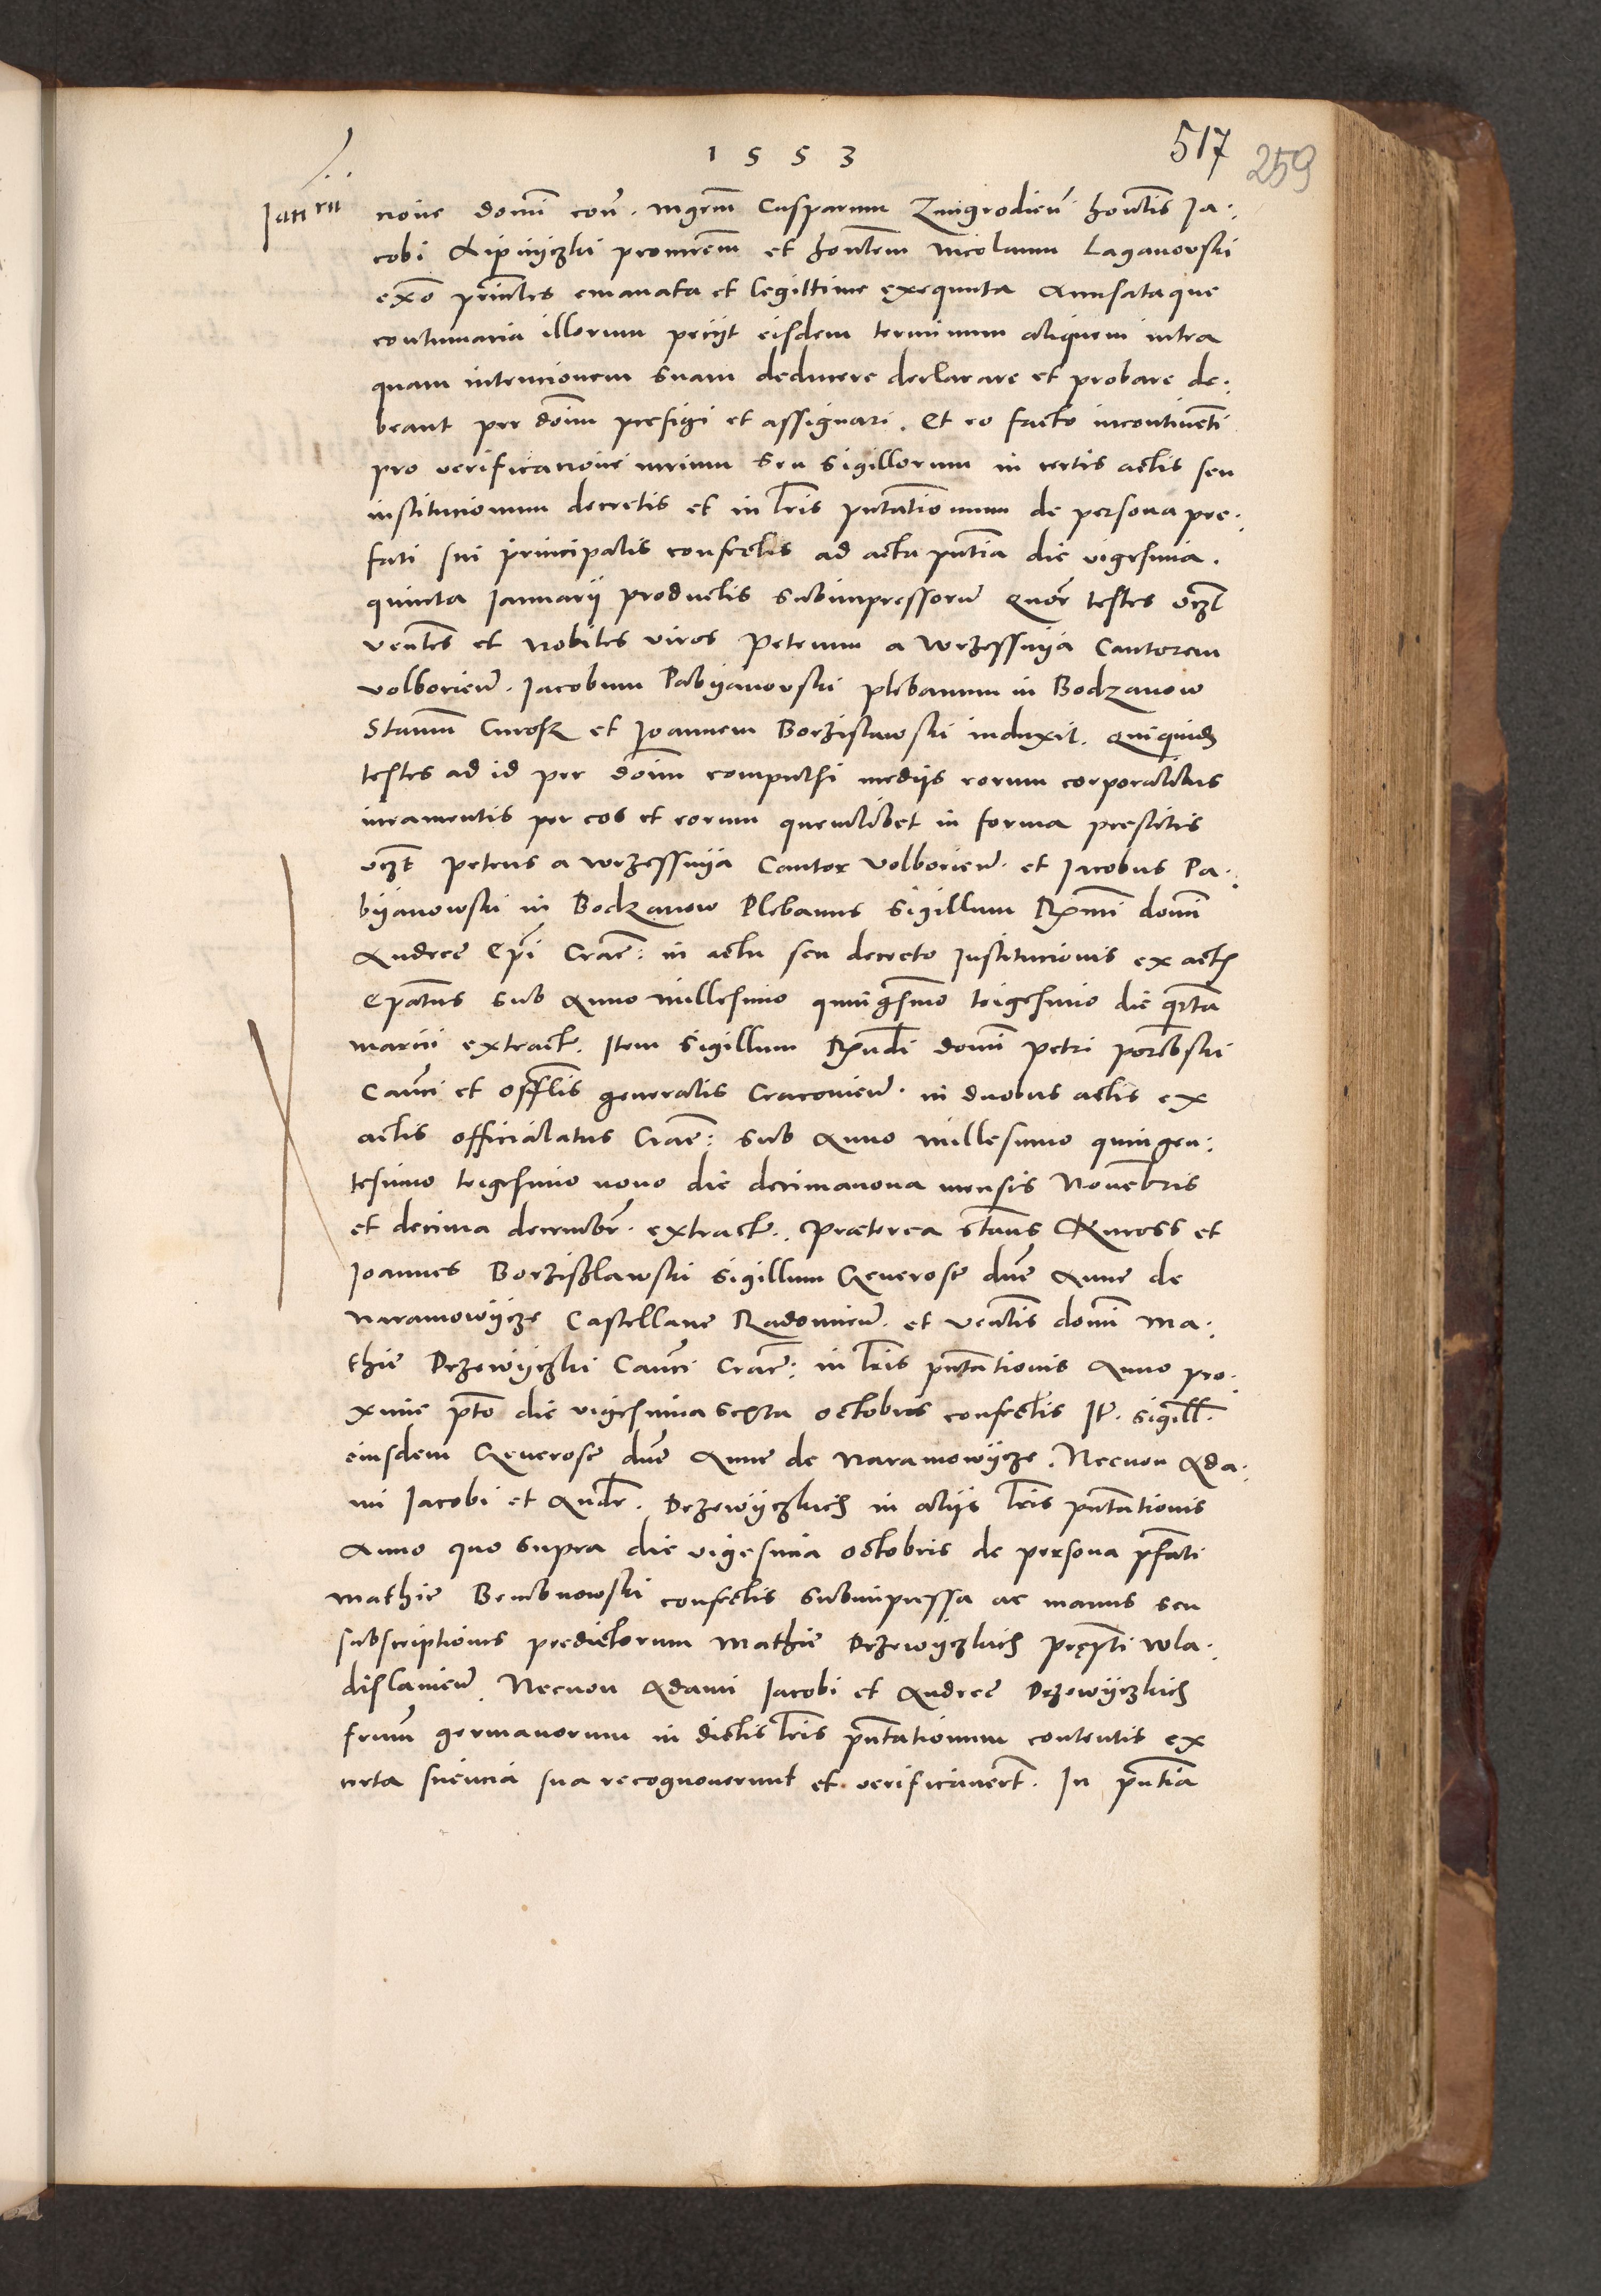 1553
517
259
Ianrii
none domi con̄. mgrm̄ Casparum Zmigrodien̄ hon̄tis Ia:
cobi Lipniczki procurem̄ et hon̄tem Nicolaum Laganovski
ex͞o principles emanata et legittime exequuta Accusataque
contumacia illorum peciit eisdem terminum aliquem intra
quam intencionem suam deducere declarare et probare de:
beant per dom̄ prefigi et assignari. Et eo facto incontinen̄ti
pro verificacione manum seu sigillorum in certis actis seu
institucionum decretis et in l̄ris pn̄tationum de persona pre:
fati sui principalis confectis ad acta pn̄tia die vigesima.
quinta Ianuarii productis subimpressorū quor̄ testes vꝫt
ven̄tes et nobiles viros Petrum a Wrzessnya Cantorem
volborien̄. Iacobum Pabyanovski plebanum in Bodzanow
Stanm̄ et Joannem Borzislawski induxit. Quiquidꝫ
testes ad id per dom̄ compulsi mediis eorum corporalibus
iuramentis per eos et eorum quemlibet in forma prestitis
vꝫt Petrus a Wrzessnya Cantor Volborien̄. et Iacobus Pa:
byanowski in Bodzanow Plebanus Sigillum Rꝫmi domi
Andree Ep̄i Crac̄: in actu seu decreto Institucionis ex actꝭ
Ep̄atus sub Anno millesimo quingesimo trigesimo die qr̄ta
marcii extract. Item Sigillum Rn̄di domi Petri Porembski
Can̄ci et offlis generalis Cracovien̄. in duobus actis ex
actis officialatus Crac̄: sub Anno millesimo quingen:
tesimo trigesimo nono die decimanona mensis Novembris
et decima decembr̄. extract. Præterea Stan̄s et
Joannes Borzislawski sigillum Generose dn̄e Anne de
Naramowycze Castellane Radomien̄. et Ven̄tis domi Ma:
thie Drzewyczki Can̄ci Crac̄: in l̄ris pn̄tationis Anno pro:
xime p̄to die vigesima sexta octobris confectis It̄. sigill.
eiusdem Generose dn̄e Anne de Naramowycze. Necnon Ada:
mi Iacobi et Andr̄. Drzewyczkich in aliis l̄ris pn̄tationis
Anno quo supra die vigesima octobris de persona p̄fati
Mathie Bembnowski confectis subimpressa ac manus seu
subscriptiones predictorum Mathie Drzewyczkich prep̄ti Wla:
dislavien̄. Necnon Adami Iacobi et Andree Drzewyczkich
frum̄ germanorum in dictis l̄ris pn̄tationum contentis ex
certa sciencia sua recognoverunt et verificaver̄t. In pn̄tia